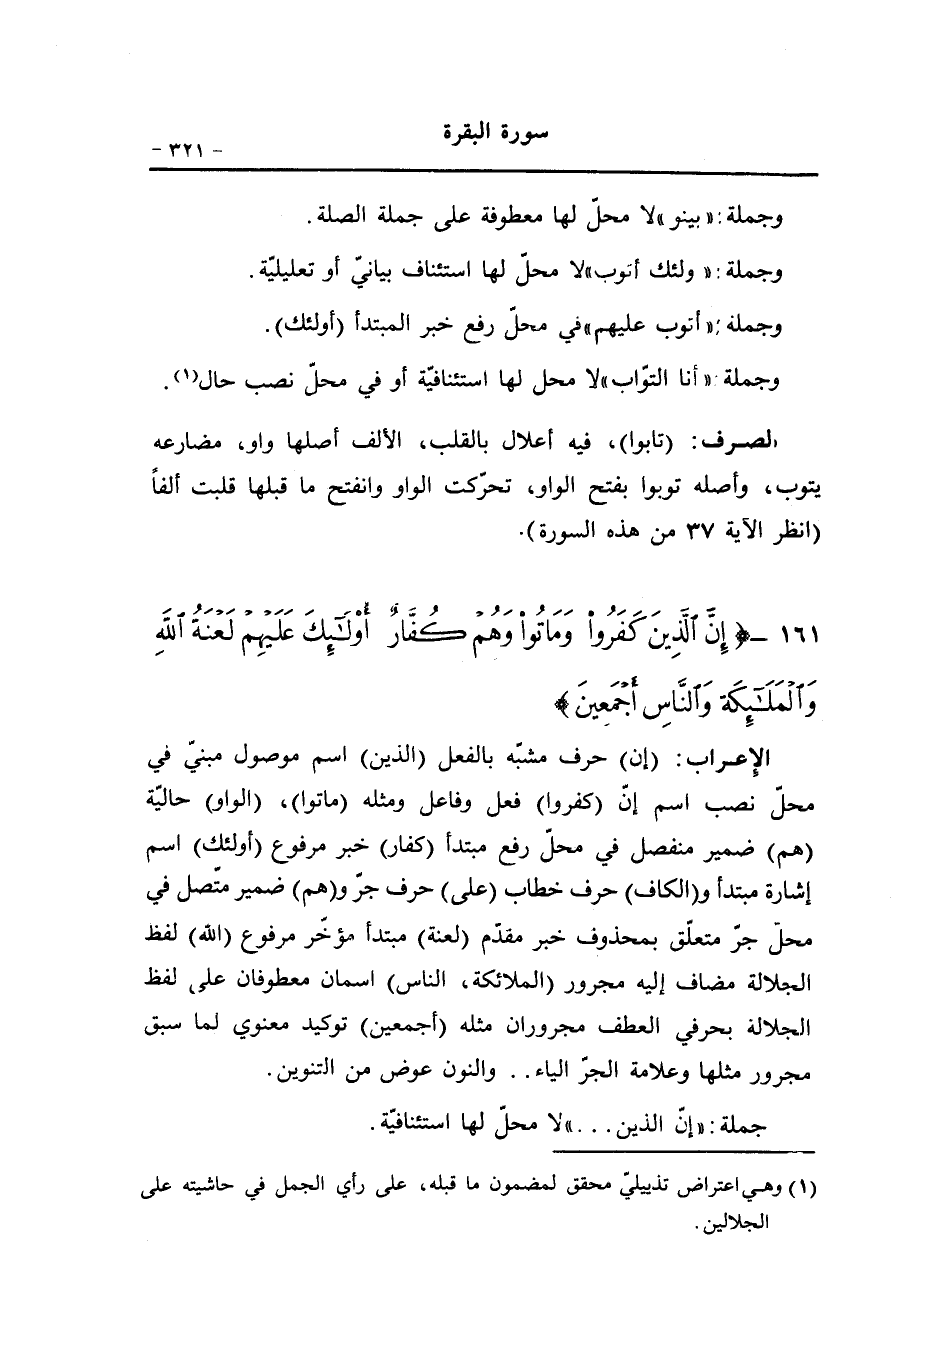 سورة البقرة
- ٣٢١ -
وجملة: « بينو » لا محلّ لها معطوفة على جملة الصلة.
وجملة: « ولئك أتوب» لا محلّ لها استئناف بيانيّ أو تعليليّة.
وجملة: « أتوب عليهم» في محلّ رفع خبر المبتدأ (أولئك).
وجملة: « أنا التوّاب» لا محل لها استئنافيّة أو في محلّ نصب حال(١).
الصـرف: (تابوا)، فيه أعلال بالقلب، الألف أصلها واو، مضارعه
يتوب، وأصله توبوا بفتح الواو، تحرّكت الواو وانفتح ما قبلها قلبت ألفاً
(انظر الآية ٣٧ من هذه السورة).
١٦١ - ﴿ إِنَّ ٱلَّذِينَ كَفَرُوا۟ وَمَاتُوا۟ وَهُمْ كُفَّارٌ أُو۟لَـٰٓئِكَ عَلَيْهِمْ لَعْنَةُ ٱللَّهِ
وَٱلْمَلَـٰٓئِكَةِ وَٱلنَّاسِ أَجْمَعِينَ ﴾
الإعـراب: (إن) حرف مشبّه بالفعل (الذين) اسم موصول مبنيّ في
محلّ نصب اسم إنّ (كفروا) فعل وفاعل ومثله (ماتوا)، (الواو) حاليّة
(هم) ضمير منفصل في محلّ رفع مبتدأ (كفار) خبر مرفوع (أولئك) اسم
إشارة مبتدأ و(الكاف) حرف خطاب (على) حرف جرّ و(هم) ضمير متّصل في
محلّ جرّ متعلّق بمحذوف خبر مقدّم (لعنة) مبتدأ مؤخّر مرفوع (الله) لفظ
الجلالة مضاف إليه مجرور (الملائكة، الناس) اسمان معطوفان على لفظ
الجلالة بحرفي العطف مجروران مثله (أجمعين) توكيد معنوي لما سبق
مجرور مثلها وعلامة الجرّ الياء.. والنون عوض من التنوين.
جملة: «إنّ الذين...» لا محلّ لها استئنافيّة.
(١) وهي اعتراض تذييليّ محقق لمضمون ما قبله، على رأي الجمل في حاشيته على
الجلالين.